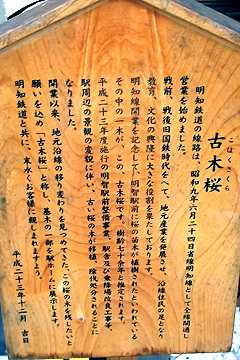 古木桜
こぼくざくら
明知鉄道の線路は、昭和九年六月二十四日省線明知線として全線開通し
営業を始めました。
戦前、戦後旧国鉄時代をへて、地元産業を発展させ、沿線住民の足となり
教育、文化の興隆に大きな役割を果たしております。
明知線開業を記念して、明智駅前に桜の苗木が植樹されたといわれている
その中の一木が、この、古木桜です。樹齢七十余年と推定されます。
平成二十三年度施行の明智駅前整備事業、駅舎及び乗降場改良工事等、
駅周辺の景観の変貌に伴い、古い桜の木が移植、除伐処分されることに
なりました。
開業以来、地元沿線の移り変わりを見つめてきた、この桜の木を残したいと
願いを込め「古木桜」と称し、基木の一部を駅ホームに展示します。
明知鉄道と共に、末永くお客様に親しまれますよう。
平成二十三年十二月 吉日